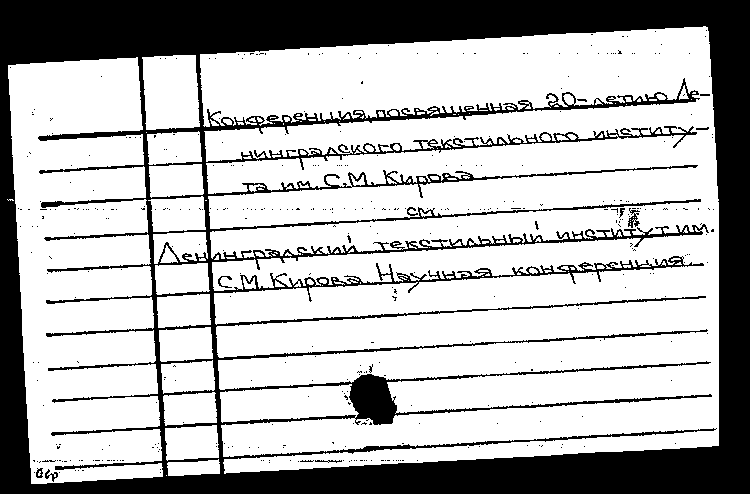 Конференция, посвященная 20-летию Ле-
нинградского текстильного институ-
та им. С.М. Кирова
см.
Ленинградский текстильный институт им.
С.М. Кирова. Научная конференция.